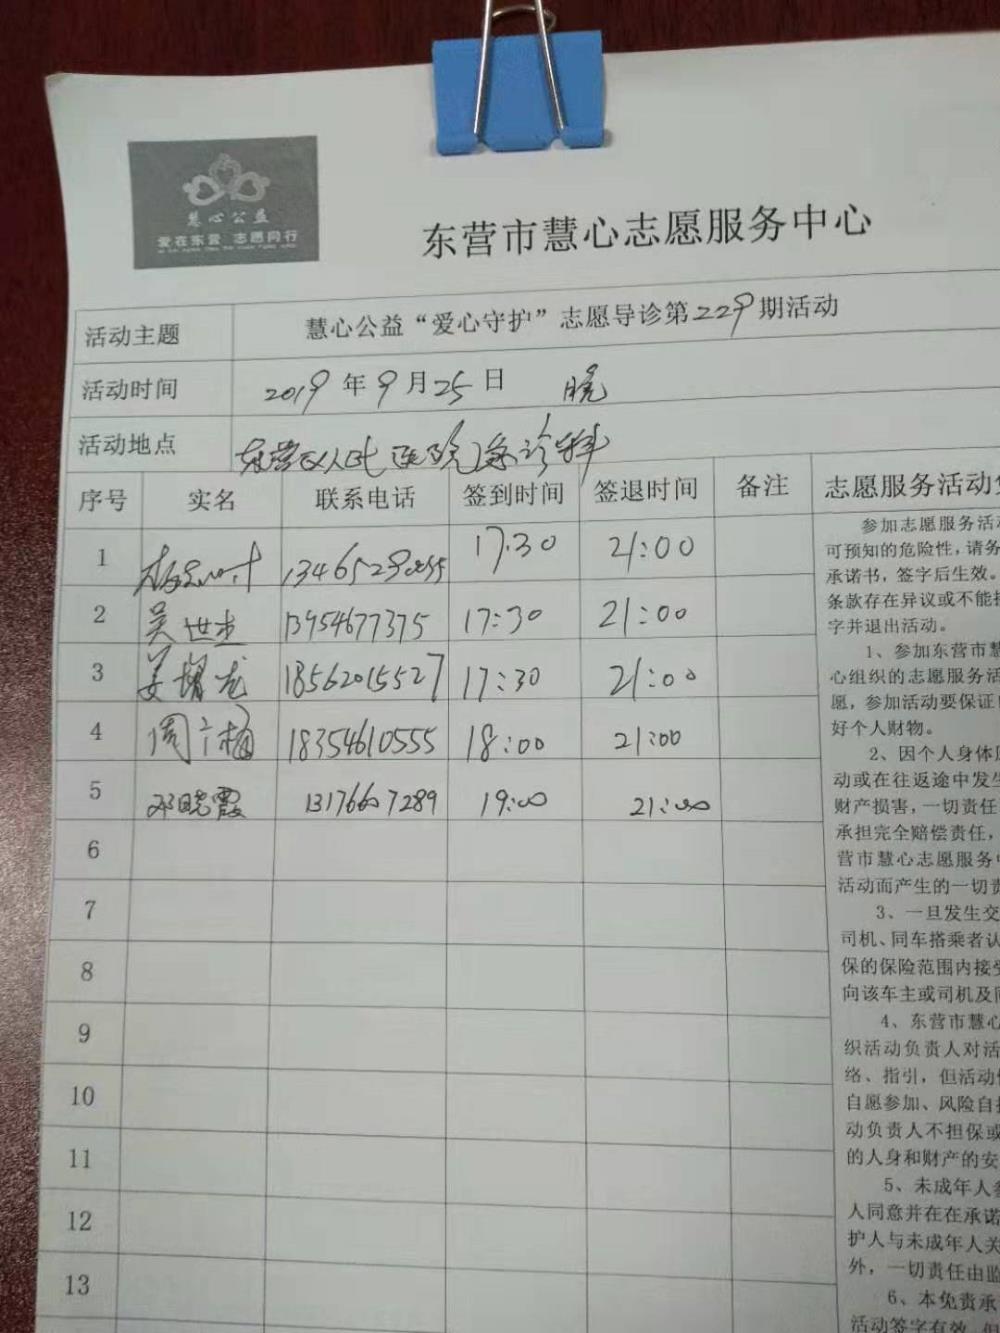 慧心公益
爱在东营 志愿同行
东营市慧心志愿服务中心
活动主题 慧心公益“爱心守护”志愿导诊第229期活动
活动时间 2019年9月25日 晚
活动地点 东营区人民医院急诊科
序号 实名 联系电话 签到时间 签退时间 备注 志愿服务活动免
1 17:30 21:00
2 吴世杰 13954677375 17:30 21:00
3 姜增龙 18562015527 17:30 21:00
4 周广梅 18354610555 18:00 21:00
5 邓晓霞 13176607289 19:00 21:00
6
7
8
9
10
11
12
13
参加志愿服务活动
可预知的危险性，请务
承诺书，签字后生效。
条款存在异议或不能接
字并退出活动。
1、参加东营市慧
心组织的志愿服务活
愿，参加活动要保证自
好个人财物。
2、因个人身体原
动或在往返途中发生
财产损害，一切责任
承担完全赔偿责任，
营市慧心志愿服务中
活动而产生的一切责
3、一旦发生交
司机、同车搭乘者认
保的保险范围内接受
向该车主或司机及同
4、东营市慧心
织活动负责人对活
络、指引，但活动
自愿参加、风险自担
动负责人不担保或
的人身和财产的安
5、未成年人参
人同意并在在承诺
护人与未成年人关
外，一切责任由监
6、本免责承
活动签字有效，但